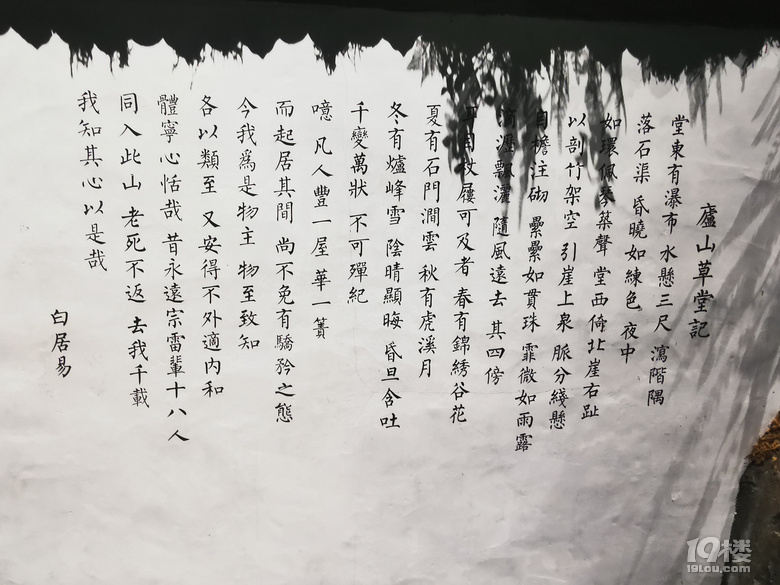 廬山草堂記
堂東有瀑布 水懸三尺 瀉階隅
落石渠 昏曉如練色 夜中
如環佩琴築聲 堂西倚北崖右趾
以剖竹架空 引崖上泉 脈分綫懸
自檐注砌 纍纍如貫珠 霏微如雨露
滴瀝飄灑 隨風遠去 其四傍
耳目杖屨可及者 春有錦綉谷花
夏有石門澗雲 秋有虎溪月
冬有爐峰雪 陰晴顯晦 昏旦含吐
千變萬狀 不可殫紀
噫 凡人豐一屋 華一簣
而起居其間 尚不免有驕矜之態
今我爲是物主 物至致知
各以類至 又安得不外適内和
體寧心恬哉 昔永遠宗雷輩十八人
同入此山 老死不返 去我千載
我知其心以是哉
白居易
19楼
19lou.com